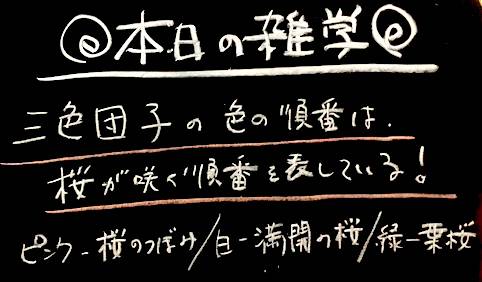 本日の雑学
三色団子の色の順番は、
桜が咲く順番を表している!
ピンク-桜のつぼみ/白-満開の桜/緑-葉桜